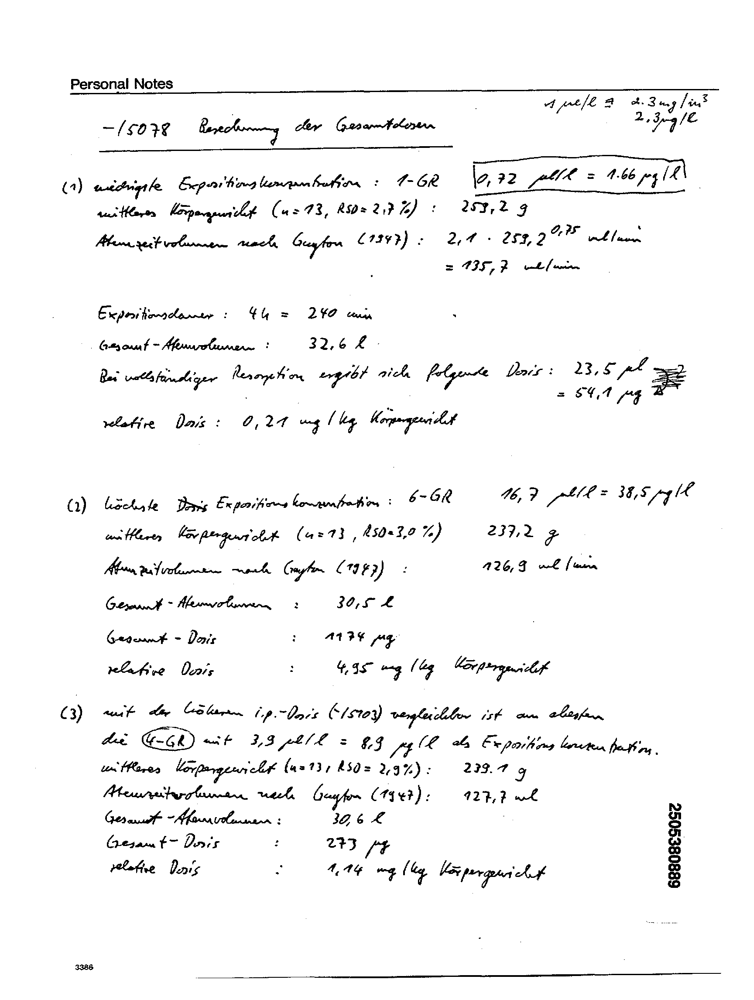 Personal Notes
1 µl/l ≙ 2.3 mg/m³
2,3 µg/l
-/5078 Berechnung der Gesamtdosen
(1) niedrigste Expositionskonzentration : 1-GR 0,72 µl/l = 1.66 µg/l
mittleres Körpergewicht (n=13, RSD=2,7%) : 259,2 g
Atemzeitvolumen nach Guyton (1947) : 2,1 · 259,2^0,75 ml/min
= 135,7 ml/min
Expositionsdauer : 4h = 240 min
Gesamt-Atemvolumen : 32,6 l
Bei vollständiger Resorption ergibt sich folgende Dosis : 23,5 µl
= 54,1 µg
relative Dosis : 0,21 mg/kg Körpergewicht
(2) höchste Expositionskonzentration : 6-GR 16,7 µl/l = 38,5 µg/l
mittleres Körpergewicht (n=13, RSD=3,0%) 237,2 g
Atemzeitvolumen nach Guyton (1947) : 126,9 ml/min
Gesamt-Atemvolumen : 30,5 l
Gesamt-Dosis : 1174 µg
relative Dosis : 4,95 mg/kg Körpergewicht
(3) mit der höheren i.p.-Dosis (-/5103) vergleichbar ist am ehesten
die 4-GR mit 3,9 µl/l = 8,9 µg/l als Expositionskonzentration.
mittleres Körpergewicht (n=13, RSD=2,9%) : 239.1 g
Atemzeitvolumen nach Guyton (1947) : 127,7 ml
Gesamt-Atemvolumen : 30,6 l
Gesamt-Dosis : 273 µg
relative Dosis : 1,14 mg/kg Körpergewicht
2505380889
3386